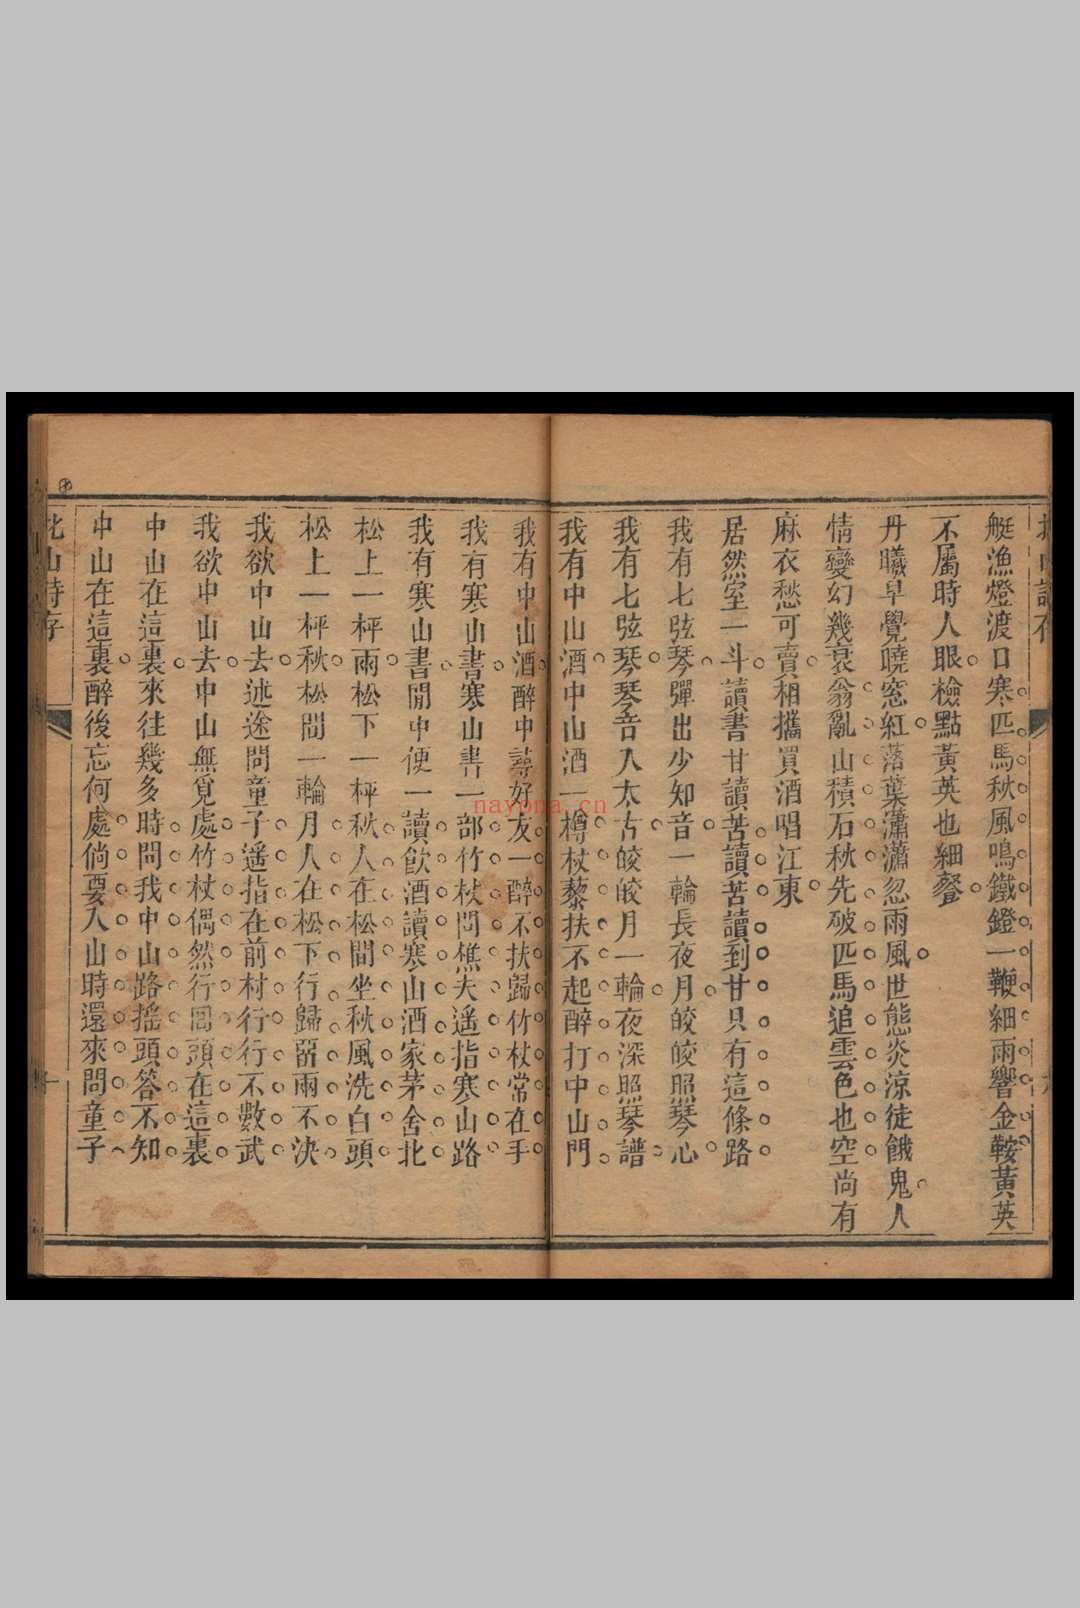 艇漁燈渡口寒匹馬秋風鳴鐵鐙一鞭細雨響金鞍黃英
不屬時人眼檢點黃英也細餐
丹曦早覺曉窓紅落葉瀟瀟忽雨風世態炎涼徒餓鬼人
情變幻幾衰翁亂山積石秋先破匹馬追雲色也空尚有
麻衣愁可賣相攜買酒唱江東
居然室一斗讀書甘讀苦讀苦讀到甘只有這條路
我有七弦琴彈出少知音一輪長夜月皎皎照琴心
我有七弦琴琴音入太古皎皎月一輪夜深照琴譜
我有中山酒中山酒一樽杖藜扶不起醉打中山門
我有中山酒醉中尋好友一醉不扶歸竹杖常在手
我有寒山書寒山書一部竹杖問樵夫遥指寒山路
我有寒山書閒中便一讀飲酒讀寒山酒家茅舍北
松上一枰雨松下一枰秋人在松間坐秋風洗白頭
松上一枰秋松間一輪月人在松下行歸畱雨不決
我欲中山去述途問童子遥指在前村行行不數武
我欲中山去中山無覓處竹杖偶然行囘頭在這裏
中山在這裏來往幾多時問我中山路摇頭答不知
中山在這裏醉後忘何處倘要入山時還來問童子
北山詩存
nayona.cn